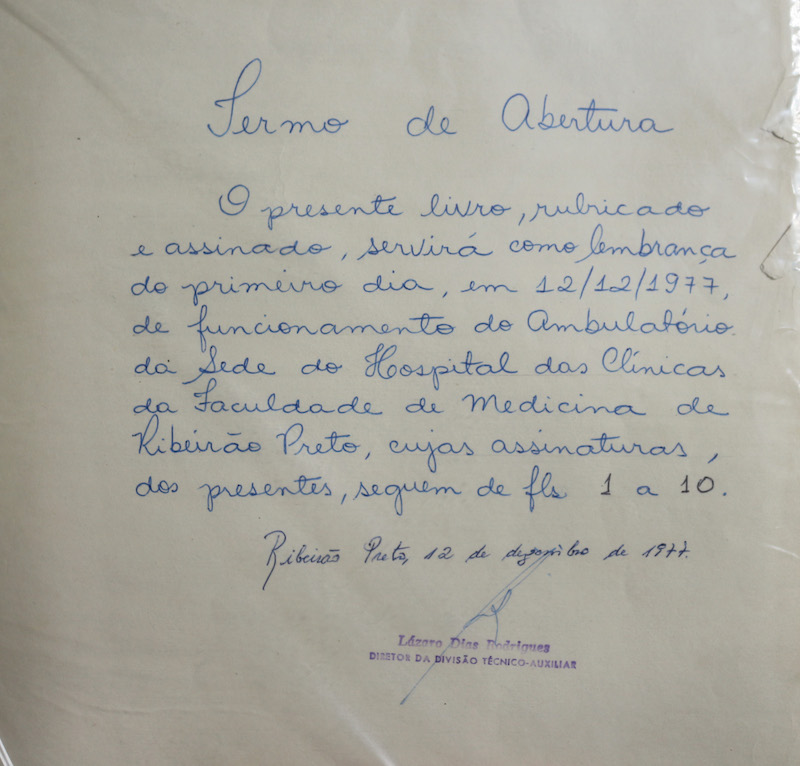 Termo de Abertura
O presente livro, rubricado
e assinado, servirá como lembrança
do primeiro dia, em 12/12/1977,
de funcionamento do Ambulatório
da Sede do Hospital das Clínicas
da Faculdade de Medicina de
Ribeirão Preto, cujas assinaturas,
dos presentes, seguem de fls 1 a 10.
Ribeirão Preto, 12 de dezembro de 1977.
Lázaro Dias Rodrigues
DIRETOR DA DIVISÃO TÉCNICO-AUXILIAR